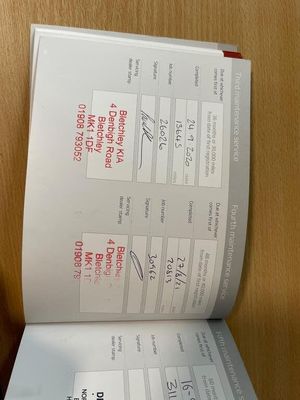 Third maintenance service
Due at whichever comes first of
36 months or 30,000 miles
from date of first registration
Completed
24 9 2020
13645
Job number
26026
Signature
Servicing
dealer stamp
Bletchley KIA
4 Denbigh Road
Bletchley
MK1 1DF
01908 793052
Fourth maintenance service
Due at whichever comes first of
48 months or 40,000 miles
from date of first registration
Completed
27/8/21
20813
Job number
30462
Signature
Servicing
dealer stamp
Bletchle
4 Denbig
Bletc
MK1 1
01908 79
Fifth maintenance
Due at whichever
comes first of
Completed
16-
311
Job number
Signature
Servicing
dealer stamp